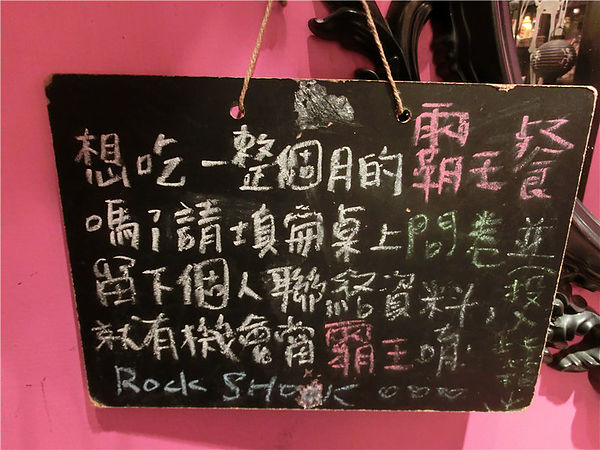 想吃一整個月的霸王餐
嗎?請填寫桌上問卷並
留下個人聯絡資料,
就有機會當霸王唷
Rock SHOCK ooo
(投入